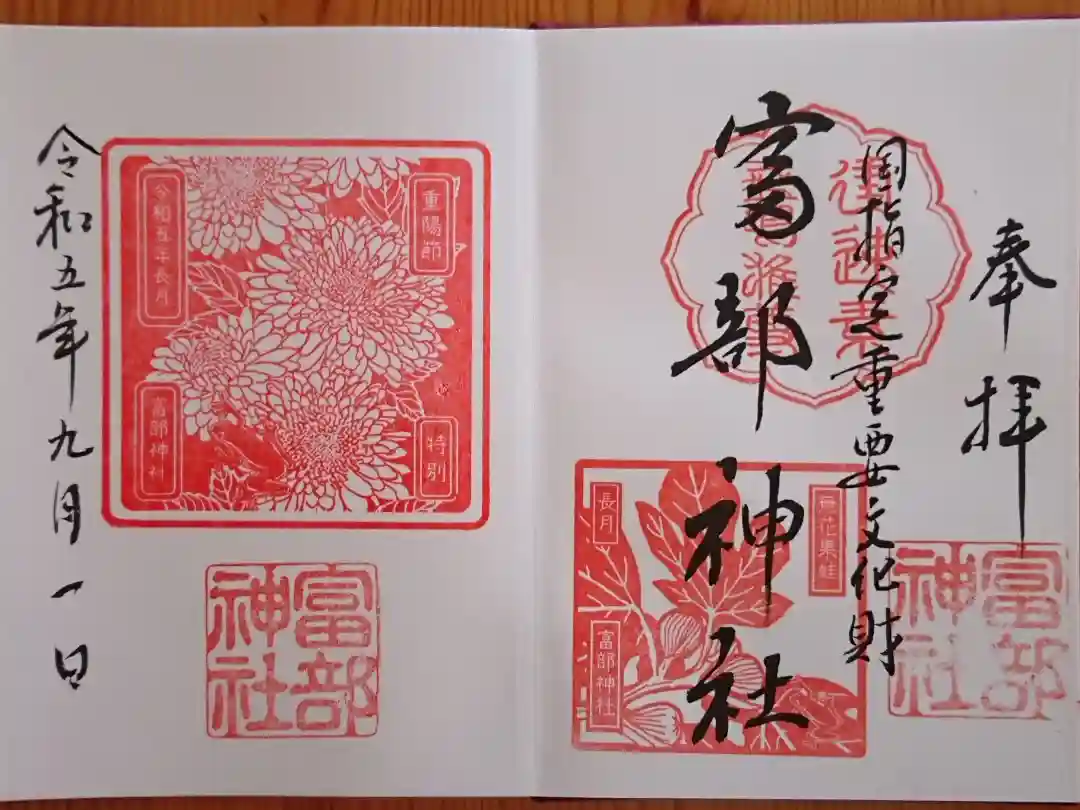 奉拝
国指定重要文化財
富部神社
無花果蛙
長月
富部神社
富部神社
重陽節
令和五年長月
特別
富部神社
富部神社
令和五年九月一日